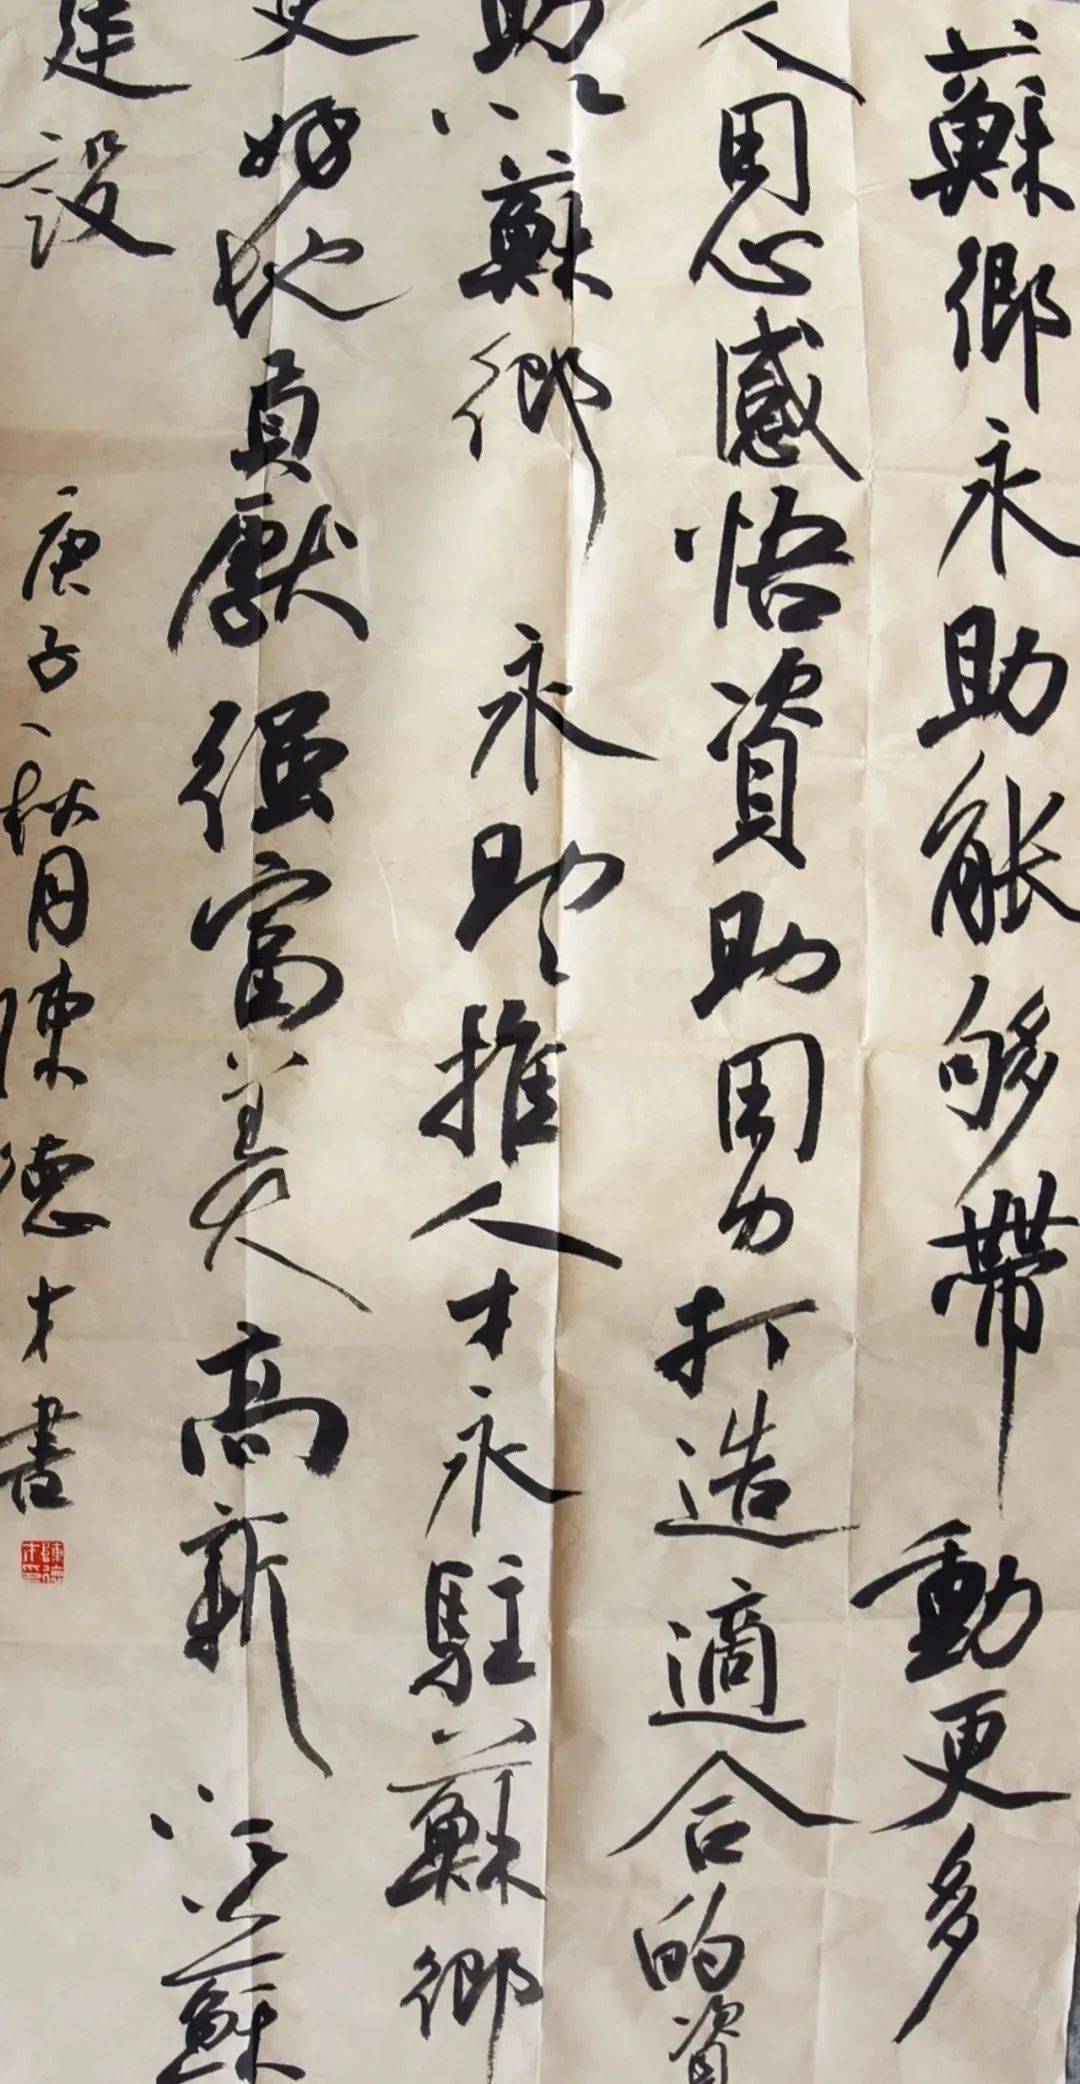 蘇鄉永助能够帶動更多
人用心感悟資助用力打造適合的資
助蘇鄉永助推人才永駐蘇鄉
更好地貢獻强富美高新江蘇
建設
庚子秋月陳德才書
陳德才印